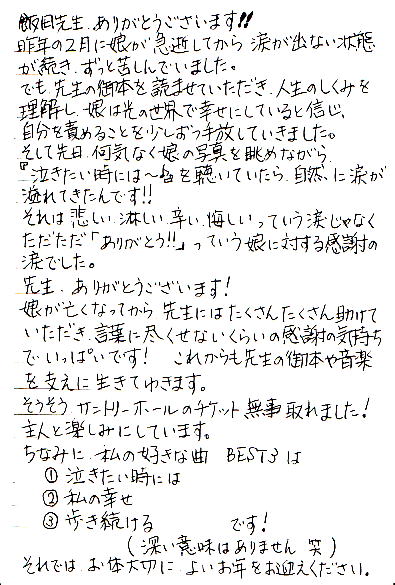 飯田先生、ありがとうございます!!
昨年の2月に娘が急逝してから 涙が出ない状態
が続き、ずっと苦しんでいました。
でも、先生の御本を読ませていただき、人生のしくみを
理解し、娘は光の世界で幸せにしていると信じ、
自分を責めることを少しずつ手放していきました。
そして先日、何気なく娘の写真を眺めながら、
『泣きたい時には〜』を聴いていたら、自然に涙が
溢れてきたんです!!
それは悲しい、淋しい、辛い、悔しいっていう涙じゃなく
ただただ「ありがとう!!」っていう娘に対する感謝の
涙でした。
先生、ありがとうございます!
娘が亡くなってから 先生にはたくさんたくさん助けて
いただき、言葉に尽くせないくらいの感謝の気持ち
でいっぱいです! これからも先生の御本や音楽
を支えに生きてゆきます。
そうそう サントリーホールのチケット 無事取れました!
主人と楽しみにしています。
ちなみに、私の好きな曲 BEST3は
① 泣きたい時には
② 私の幸せ
③ 歩き続ける です!
(深い意味はありません 笑)
それでは、お体大切に、よいお年をお迎えください。